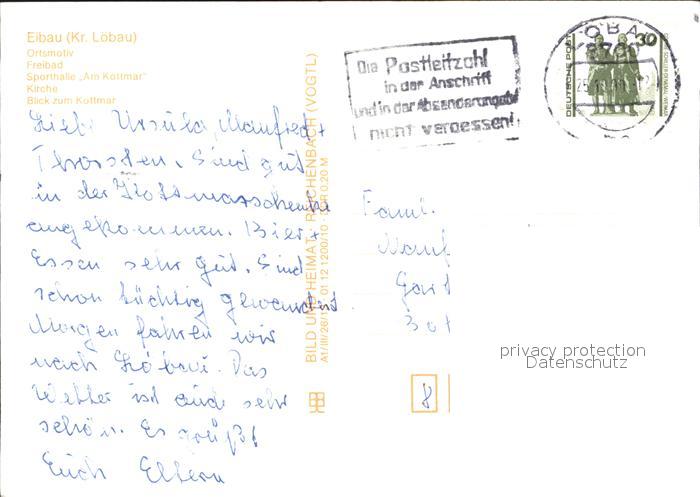 Eibau (Kr. Löbau)
Ortsmotiv
Freibad
Sporthalle „Am Kottmar"
Kirche
Blick zum Kottmar
Liebe Ursula, Manfred +
Thorsten. Sind gut
in der Kottmarschenke
angekommen. Bier +
Essen sehr gut. Sind
schon tüchtig gewandert
Morgen fahren wir
nach Löbau. Das
Wetter ist auch sehr
schön. Es grüßt
Euch Eltern
BILD UND HEIMAT REICHENBACH (VOGTL)
A1/III/26/13 01 12 1200/10
0,20 M
Die Postleitzahl
in der Anschrift
und in der Absenderangabe
nicht vergessen!
LÖBAU
8700
DEUTSCHE POST
30
Faml.
Manf
Gart
8
privacy protection
Datenschutz